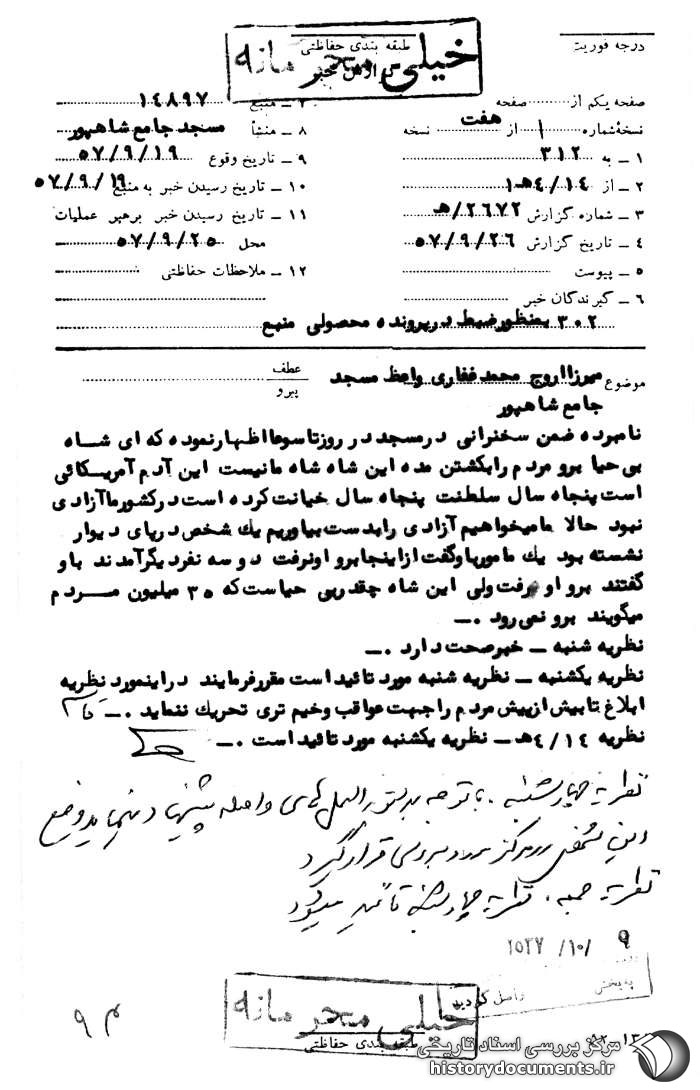 درجه فوریت
طبقه بندی حفاظتی
خیلی محرمانه
گزارش خبر
صفحه یکم از صفحه
نسخه شماره ۱ از هفت نسخه
۱ ــ به ۳۱۲
۲ ــ از ۱ه‍ ۴/۱۴
۳ ــ شماره گزارش ۲۶۷۲/ه‍
۴ ــ تاریخ گزارش ۵۷/۹/۲۶
۵ ــ پیوست
۶ ــ گیرندگان خبر
۷ ــ منبع ۱۴۸۹۷
۸ ــ منشأ مسجد جامع شاهپور
۹ ــ تاریخ وقوع ۵۷/۹/۱۹
۱۰ ــ تاریخ رسیدن خبر به منبع ۵۷/۹/۱۹
۱۱ ــ تاریخ رسیدن خبر برهبر عملیات
محل ۵۷/۹/۲۵
۱۲ ــ ملاحظات حفاظتی
۳۰۲ بمنظور ضبط در پرونده محصولی منبع
موضوع میرزا اروج محمد غفاری واعظ مسجد
جامع شاهپور
عطف
پیرو
نامبرده ضمن سخنرانی در مسجد در روز تاسوعا اظهار نموده که ای شاه
بی حیا برو مردم را بکشتن مده این شاه شاه ما نیست این آدم آمریکائی
است پنجاه سال سلطنت پنجاه سال خیانت کرده است در کشور ما آزادی
نبود حالا ما میخواهیم آزادی را بدست بیاوریم یك شخص در پای دیوار
نشسته بود یك مامور باو گفت از اینجا برو او نرفت دو سه نفر دیگر آمدند باو
گفتند برو او رفت ولی این شاه چقدر بی حیاست که ۳۵ میلیون مردم
میگویند برو نمی رود ۰ــ
نظریه شنبه ــ خبر صحت دارد ۰ــ
نظریه یکشنبه ــ نظریه شنبه مورد تائید است مقرر فرمایند در اینمورد نظریه
ابلاغ تا بیش از پیش مردم را جهت عواقب وخیم تری تحریك ننماید ۰ــ
نظریه ۴/۱۴ه‍ ــ نظریه یکشنبه مورد تائید است ۰ــ
نظریه چهارشنبه . با توجه بدستورالعمل های واصله پیشنهاد مینماید وضع
این شخص در مرکز مورد بررسی قرار گیرد
نظریه جمعه . نظریه چهارشنبه تائید میشود
۹ /۱۰/ ۲۵۳۷
به بخش
واصل گردید
خیلی محرمانه
طبقه بندی حفاظتی
م ۹
مرکز بررسی اسناد تاریخی
historydocuments.ir